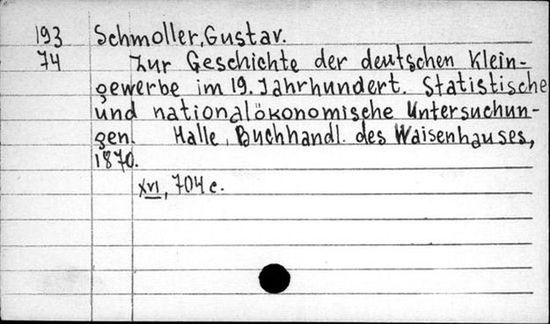 193 Schmoller, Gustav.
74 Zur Geschichte der deutschen Klein-
gewerbe im 19. Jahrhundert. Statistische
und nationalökonomische Untersuchun-
gen. Halle, Buchhandl. des Waisenhauses,
1870.
XVI, 704 c.